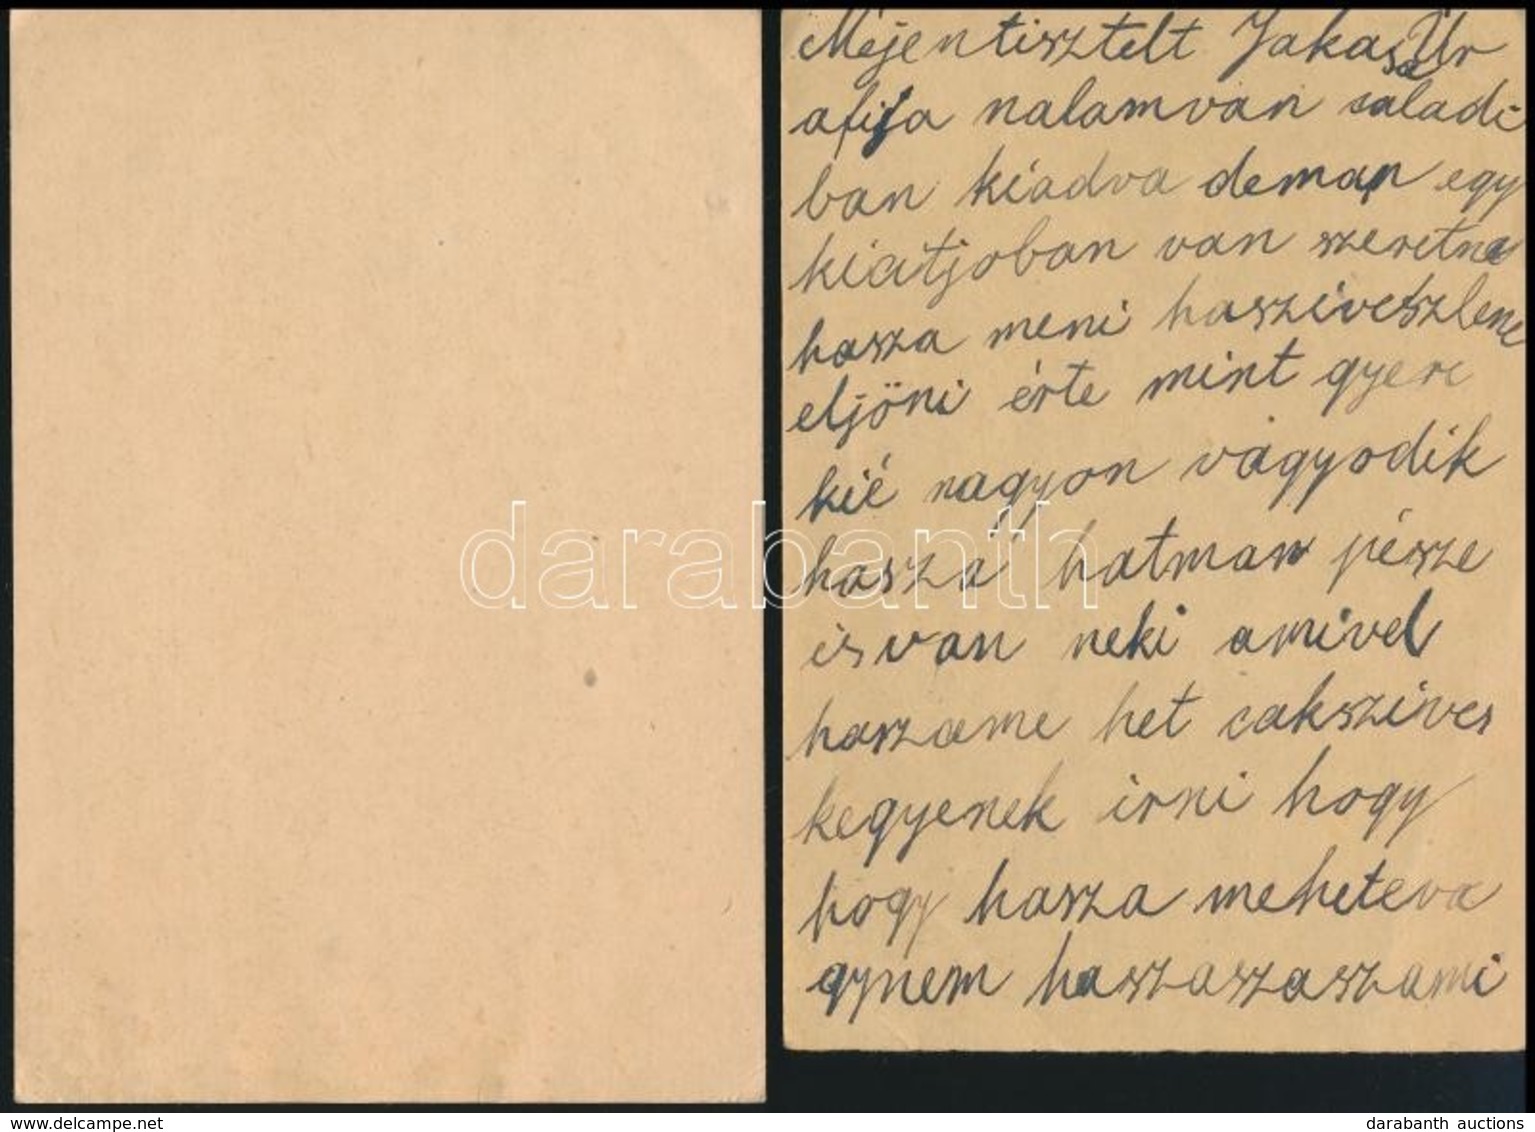 Mejentisztelt Jakasa Úr
afija nalamvan saladi
ban kiadva deman egy
kiatjoban van szeretne
hasza meni haszivetszlene
eljöni érte mint gyere
kié nagyon vágyodik
hasza hatman pésze
is van neki amivel
haszame het cakszives
kegyenek irni hogy
hogy hasza meheteva
gynem haszaszaszami
darabanth
darabanth auctions
darabanth auctions